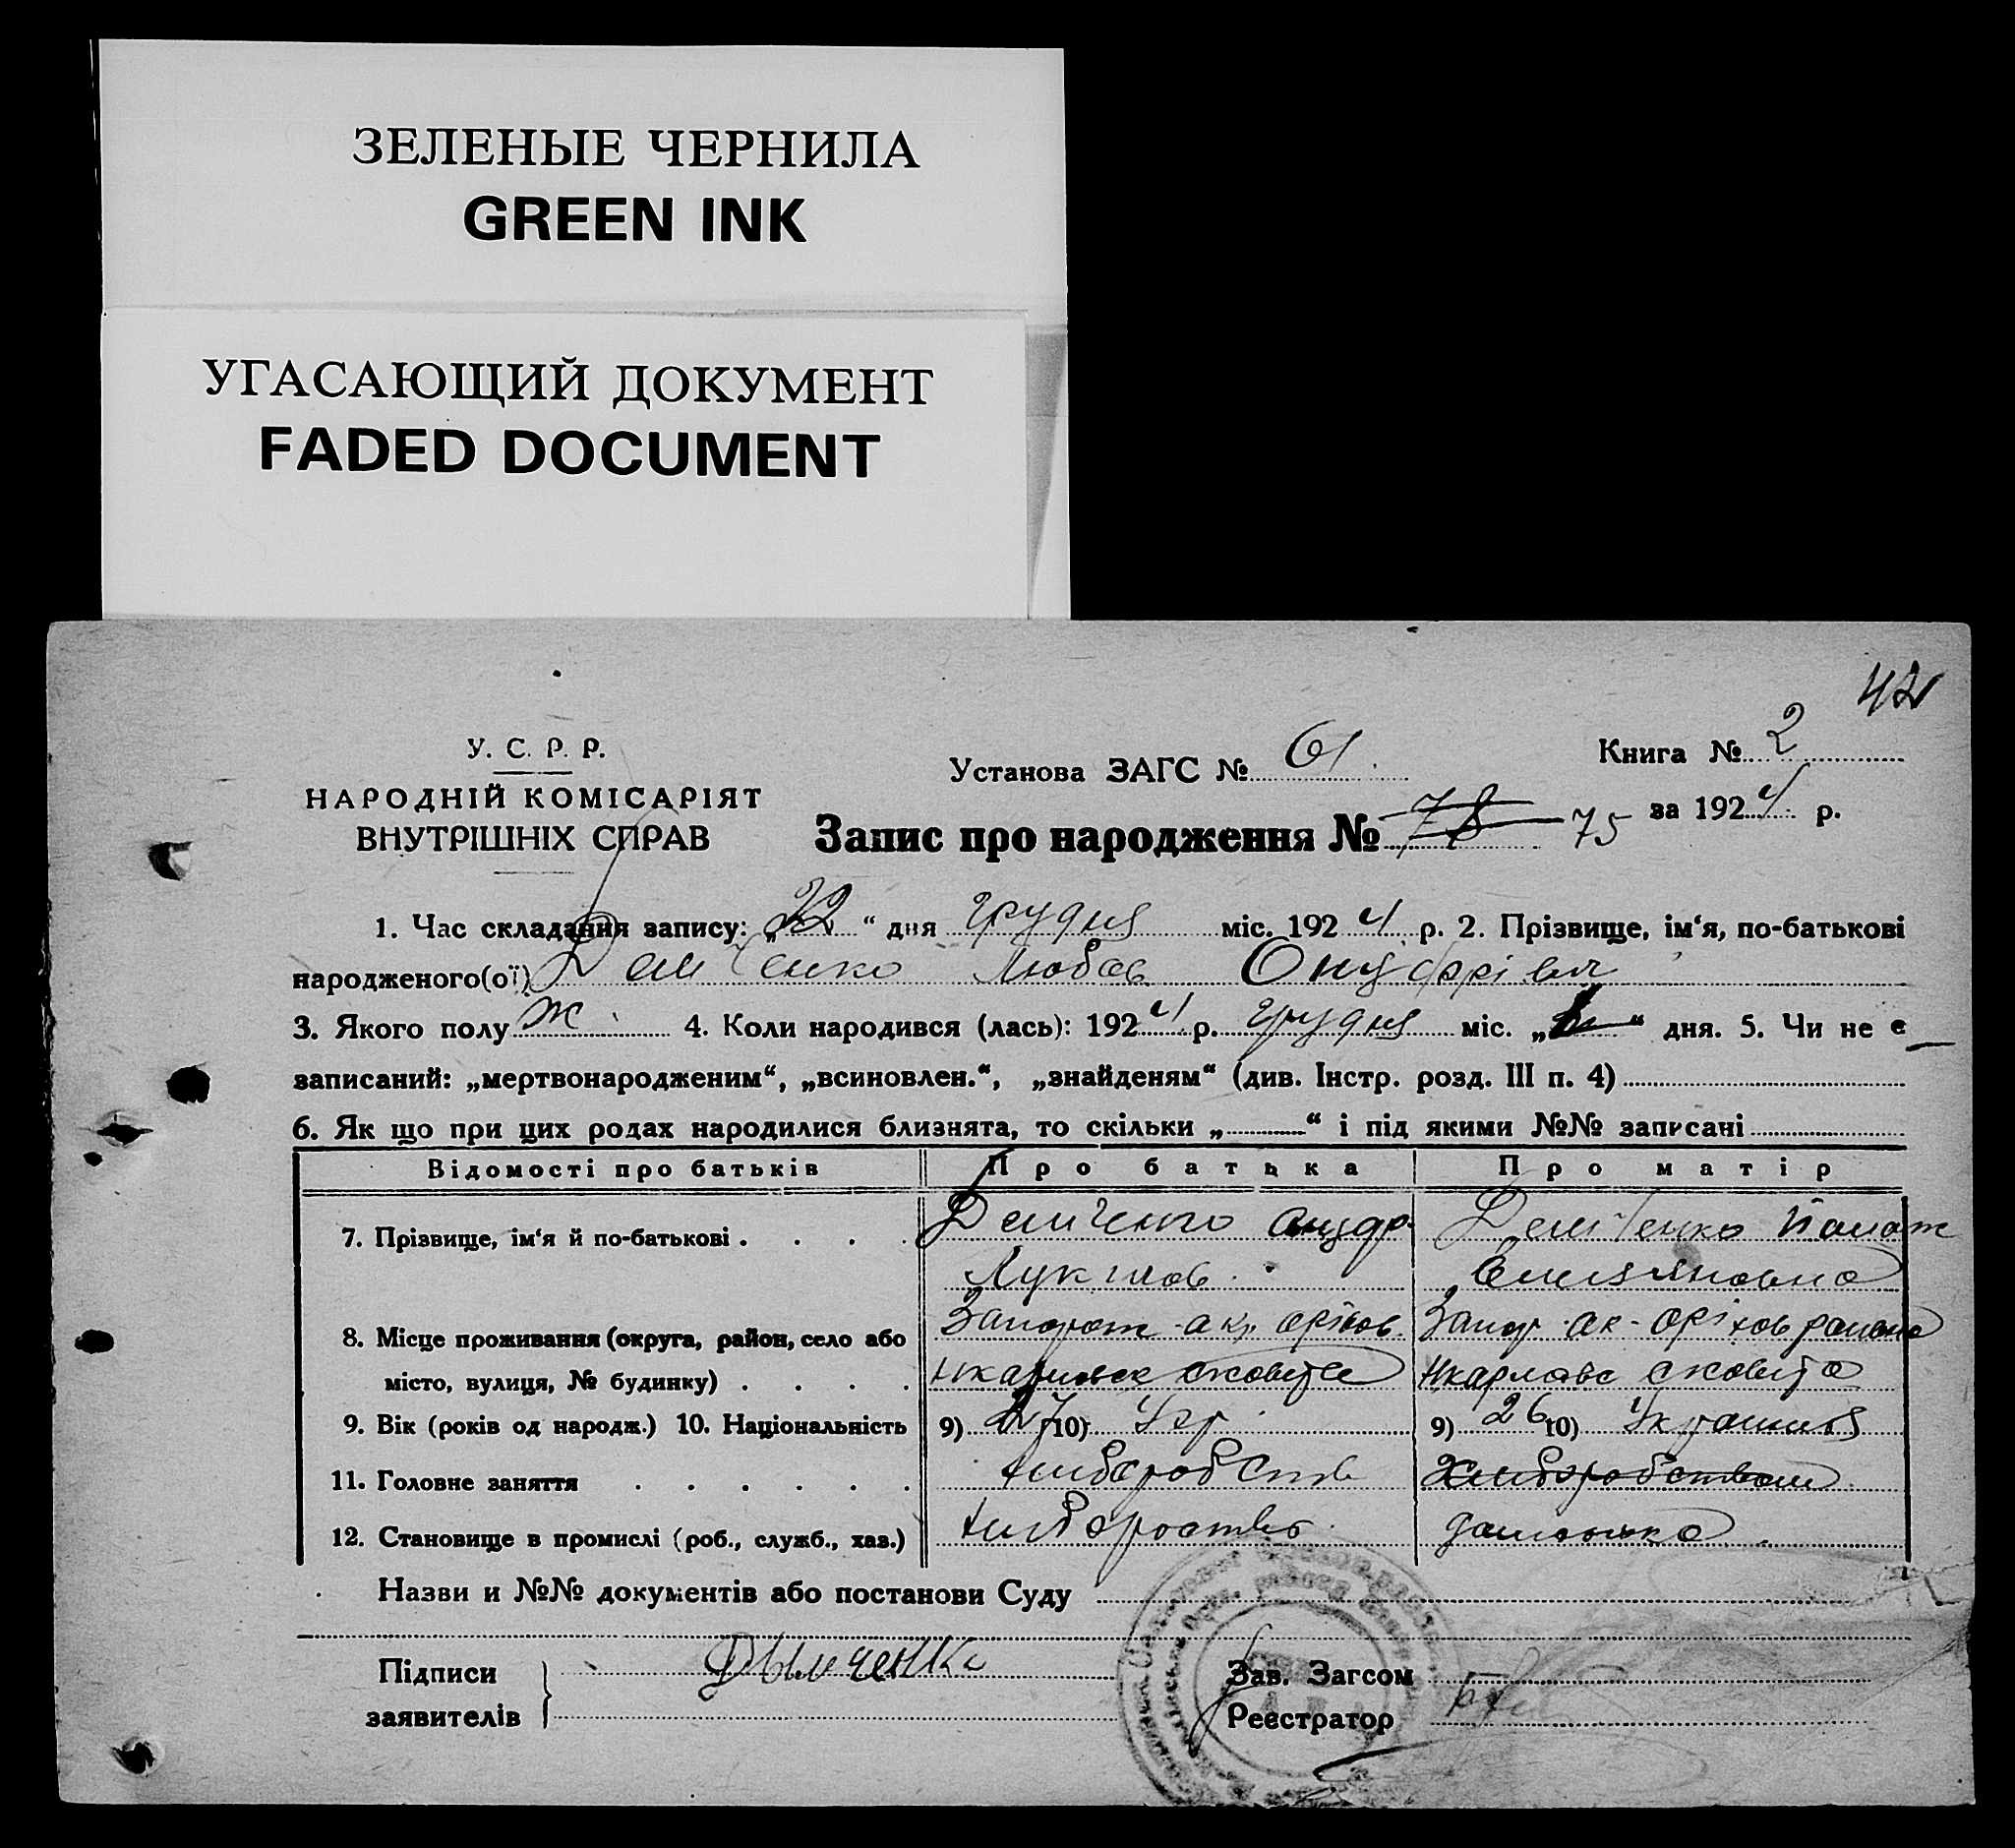 ЗЕЛЕНЫЕ ЧЕРНИЛА
GREEN INK
УГАСАЮЩИЙ ДОКУМЕНТ
FADED DOCUMENT
42
У. С. Р. Р.
НАРОДНІЙ КОМІСАРІЯТ
ВНУТРІШНІХ СПРАВ
Установа ЗАГС № 61.
Книга № 2
Запис про народження № 78 75 за 1924 р.
1. Час складання запису: „22“ дня грудня міс. 1924 р. 2. Прізвище, ім‘я, по-батькові
народженого(ої) Демченко Любов Онуфрієвл
3. Якого полу ж. 4. Коли народився (лась): 1924 р. грудня міс. „ “ дня. 5. Чи не є
записаний: „мертвонародженим“, „всиновлен.“, „знайденям“ (див. Інстр. розд. III п. 4)
6. Як що при цих родах народилися близнята, то скільки „ “ і під якими №№ записані
Відомості про батьків Про батька Про матір
7. Прізвище, ім‘я й по-батькові Демченко Демченко
Лукянов. Емиляновна
8. Місце проживання (округа, район, село або Запорож. окр. оріхов. Запор. ок. Оріхов району
місто, вулиця, № будинку)
9. Вік (років од народж.) 10. Національність 9) 27 10) Укр. 9) 26 10) Україн
11. Головне заняття хліборобств хліборобством
12. Становище в промислі (роб., служб., хаз.) домашня
Назви и №№ документів або постанови Суду
Підписи Дымченко Зав. Загсом
заявителів Реєстратор